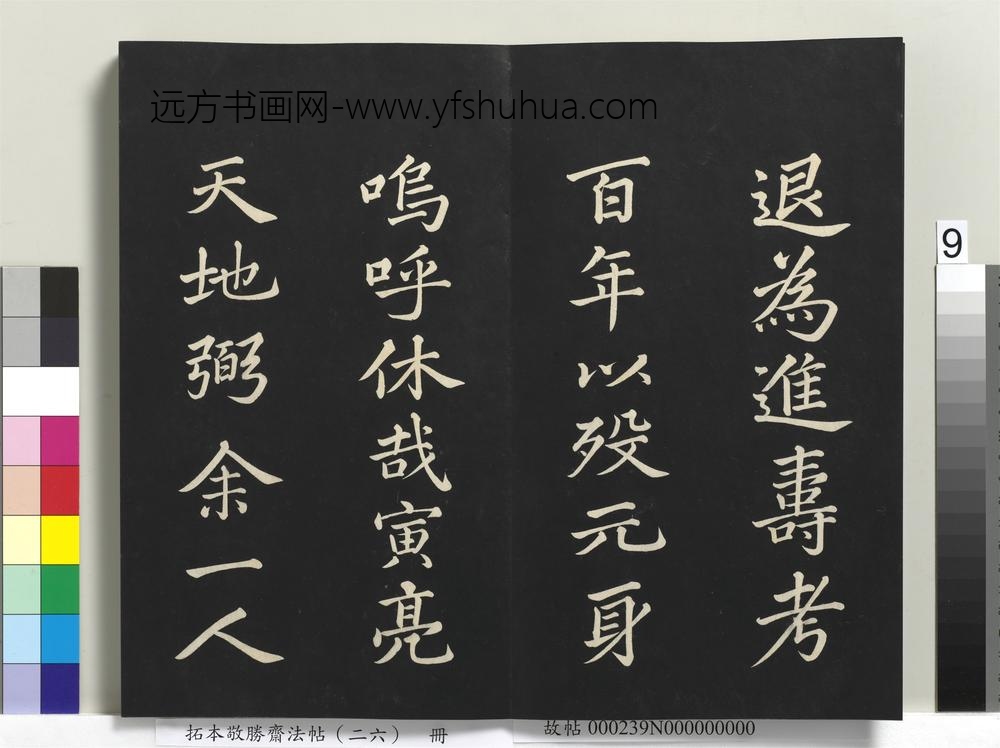 远方书画网-www.yfshuhua.com
退為進壽考
百年以歿元身
嗚呼休哉寅亮
天地弼余一人
9
拓本敬勝齋法帖(二六) 冊
故帖 000239N000000000